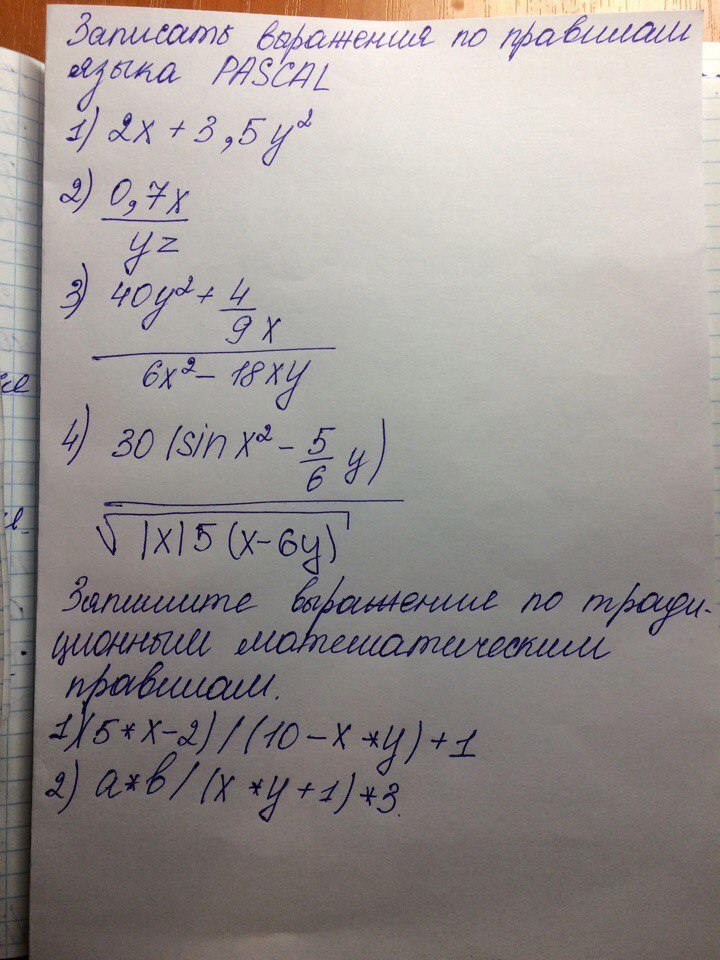 Записать выражения по правилам
языка PASCAL
1) 2x + 3,5y²
2) 0,7x
yz
3) 40y² + 4
9 x
6x² - 18xy
4) 30 (sin x² - 5
6 y)
√|x|5 (x-6y)
Запишите выражение по тради-
ционным математическим
правилам.
1)(5*x-2)/(10-x*y)+1
2) a*b/(x*y+1)*3.